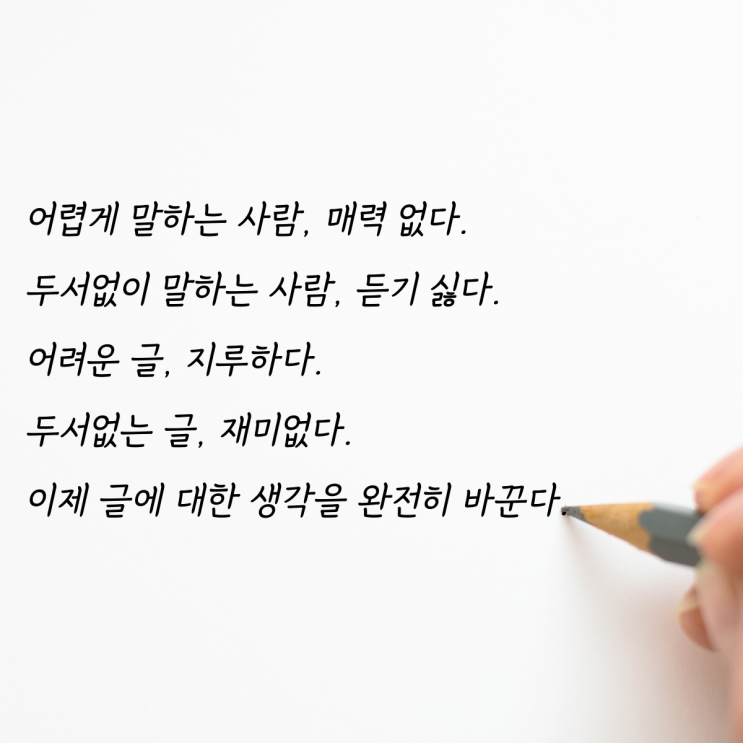 어렵게 말하는 사람, 매력 없다.
두서없이 말하는 사람, 듣기 싫다.
어려운 글, 지루하다.
두서없는 글, 재미없다.
이제 글에 대한 생각을 완전히 바꾼다.